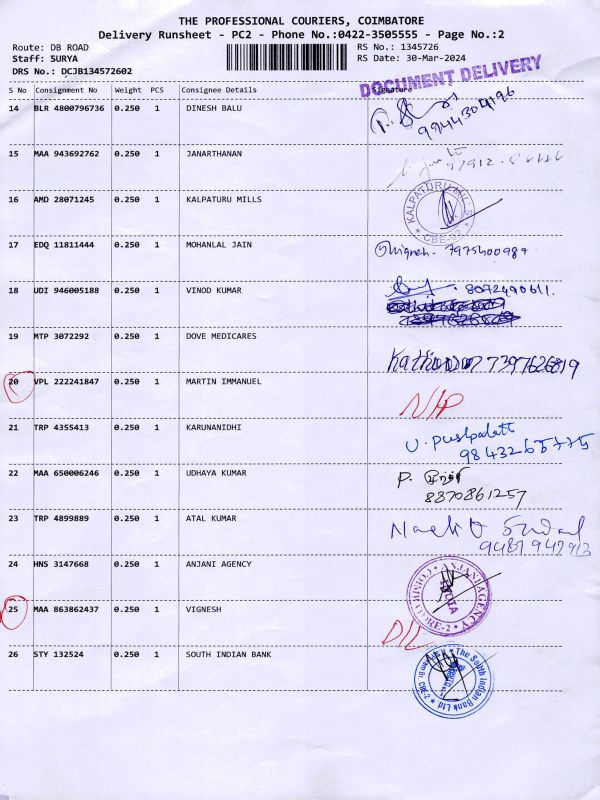 THE PROFESSIONAL COURIERS, COIMBATORE
Delivery Runsheet - PC2 - Phone No.:0422-3505555 - Page No.:2
Route: DB ROAD RS No.: 1345726
Staff: SURYA RS Date: 30-Mar-2024
DRS No.: DCJB134572602
DOCUMENT DELIVERY
S No Consignment No Weight PCS Consignee Details Signature
14 BLR 4800796736 0.250 1 DINESH BALU
9944304196
15 MAA 943692762 0.250 1 JANARTHANAN
16 AMD 28071245 0.250 1 KALPATURU MILLS
KALPATURU MILLS
17 EDQ 11811444 0.250 1 MOHANLAL JAIN
7975400984
18 UDI 946005188 0.250 1 VINOD KUMAR
8072490611.
19 MTP 3072292 0.250 1 DOVE MEDICARES
7397626819
20 VPL 222241847 0.250 1 MARTIN IMMANUEL
21 TRP 4355413 0.250 1 KARUNANIDHI
U. Pushpalatt
9843265775
22 MAA 650006246 0.250 1 UDHAYA KUMAR
8870861257
23 TRP 4899889 0.250 1 ATAL KUMAR
9487947913
24 HNS 3147668 0.250 1 ANJANI AGENCY
ANJANI AGENCY
25 MAA 863862437 0.250 1 VIGNESH
D/L
26 STY 132524 0.250 1 SOUTH INDIAN BANK
The South Indian Bank Ltd